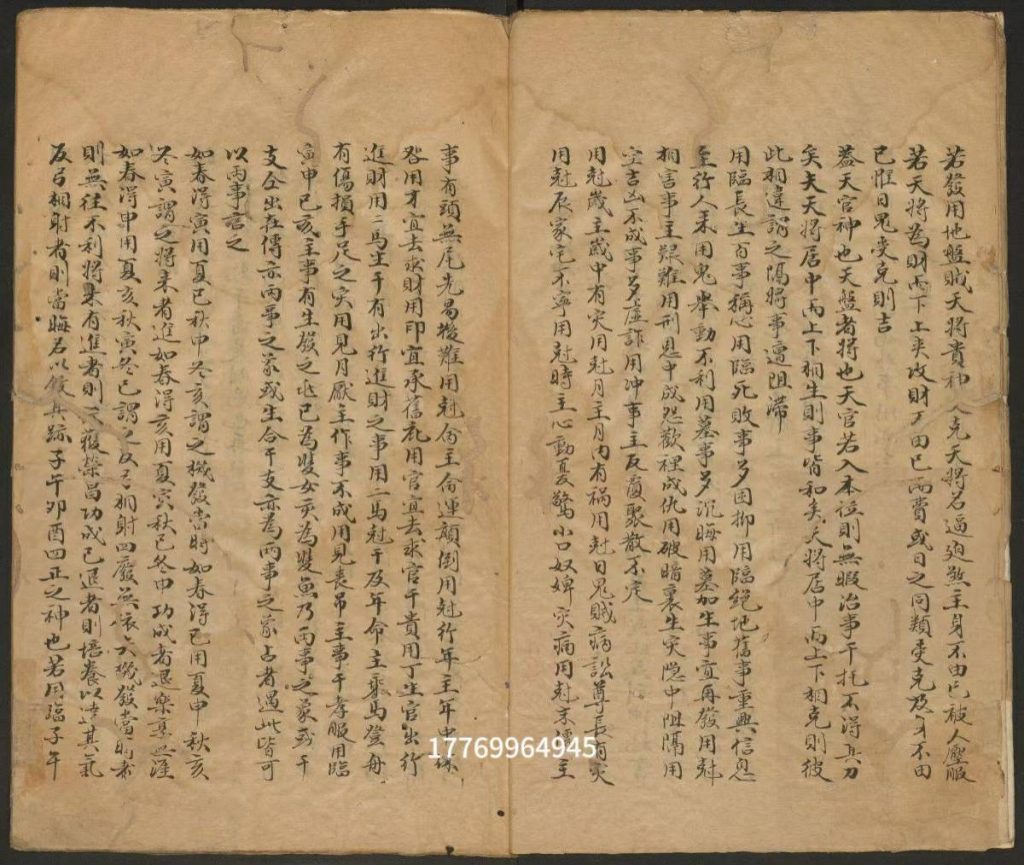 若發用地盤賊天將貴神人克天將名逼迫煞主身不由己被人壓服
若天將為財而下上夾攻財了由己而費或日之同類受克及身不由
己惟日鬼夾克則吉
蓋天官神也天盤者將也天官若入本位則無暇治事干托不得其力
矣夫天將居中而上下相生則事皆和矣天將居中而上下相克則彼
此相違謂之隔將事遭阻滯
用臨長生百事稱心用臨死敗事多困抑用臨絕地舊事重興信息
至行人來用鬼舉動不利用墓事多沉晦用墓加生事宜再發用尅
相害事主艱難用刑恩中成怨歡裡成仇用破暗裏生災隐中阻隔用
空吉凶不成事多虛詐用冲事主反復聚散不定
用尅歲主歲中有災用尅月主月內有禍用尅日鬼賊病訟尊長有災
用尅辰家宅不寧用尅時主心動憂驚小口奴婢災病用尅末傳主
事有頭無尾先易後難用尅命主命運顛倒用尅行年主年中
用才宜去求財用印宜承舊庇用官宜去求官干貴用丁生官出行
進財用二馬生干有出行進財之事用二馬尅干及年命主乘馬登舟
有傷損手足之災用見月厭主作事不成用見喪吊主事干孝服用臨
寅申巳亥主事有生發之兆巳為雙女亥為雙魚乃兩事之象或干
支仝出在傳亦兩事之象或生合干支亦為兩事之象占者遇此皆可
以兩事言之
如春得寅用夏巳秋申冬亥謂之機發當時如春得巳用夏申秋亥
冬寅謂之將來者進如春得亥用夏寅秋巳冬申功成者退樂意無涯
如春得申用夏亥秋寅冬巳謂之反弓相射四廢無衣六機發當時者
則無往不利將來有進者則立獲榮昌功成已退者則培養以達其氣
反弓相射者則當晦名以斂其跡子午卯酉四正之神也若用臨子午
17769964945